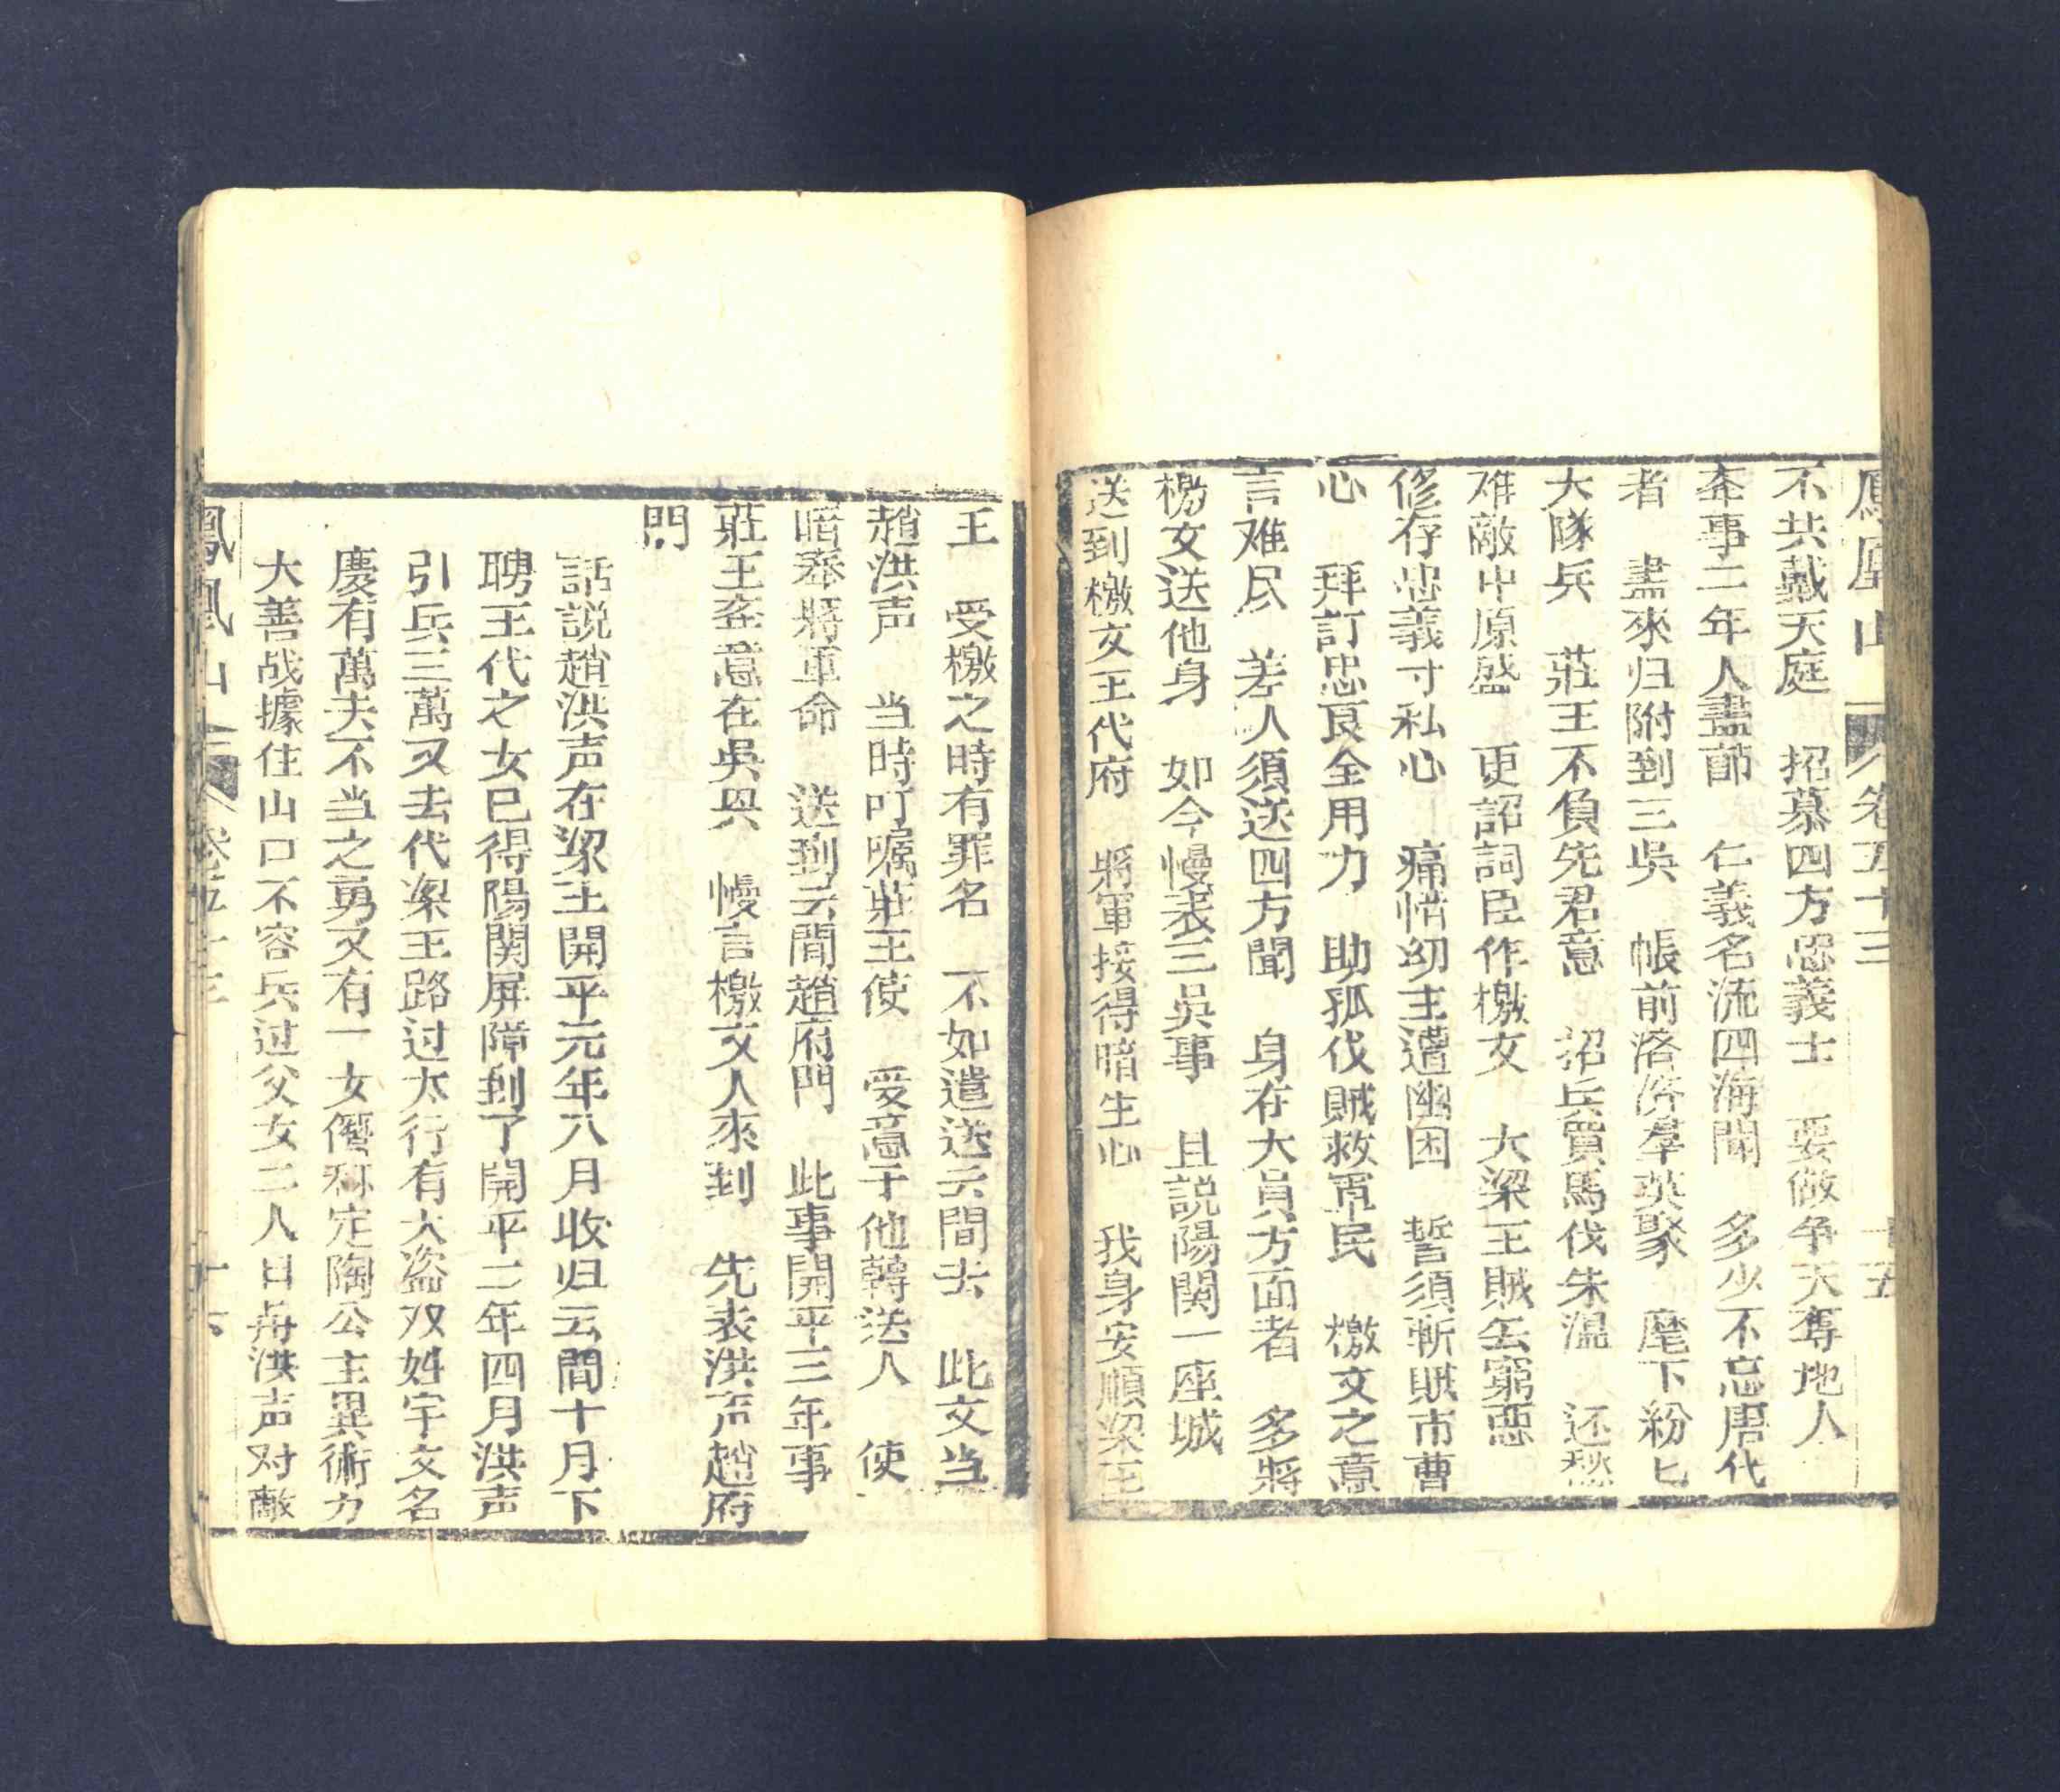 鳳凰山 卷五十三 十五
不共戴天庭 招慕四方忠義士 要做争天奪地人
本事二年人盡節 仁義名流四海聞 多少不忘唐代
者 盡來归附到三吳 帳前濟濟羣英聚 麾下紛匕
大隊兵 莊王不負先君意 招兵買馬伐朱溫 还愁
难敵中原盛 更詔詞臣作檄文 大梁王賊罢窮惡
修存忠義寸私心 痛惜幼主遭幽困 誓須斬賊市曹
心 拜訂忠良全用力 助孤伐賊救軍民 檄文之意
言难尽 差人須送四方聞 身在大員方面者 多將
檄文送他身 如今慢表三吳事 且説陽関一座城
送到檄文王代府 將軍接得暗生心 我身安順梁王
王 受檄之時有罪名 不如遣送云間去 此文当
趙洪声 当時叮嘱莊王使 爱意于他轉送人 使
暗奉將軍命 送到云間趙府門 此事開平三年事
莊王本意在吳與 慢言檄文人來到 先表洪声趙府
門
話説趙洪声在梁王開平元年八月收归云間十月下
聘王代之女巳得陽関屏障到了開平二年四月洪声
引兵三萬又去代梁王路过太行有大盗双姓宇文名
慶有萬夫不当之勇又有一女僭称定陶公主異術力
大善战據住山口不容兵过父女二人日与洪声对敵
鳳凰山 卷五十三 十六